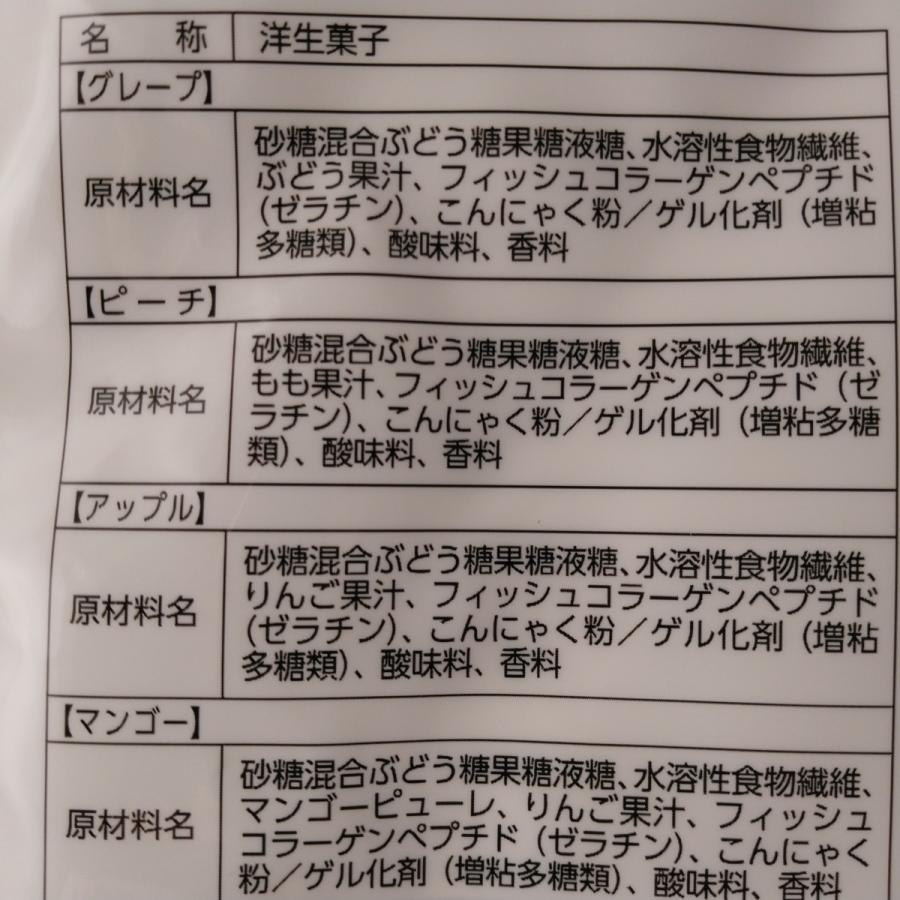 名　称　洋生菓子
【グレープ】
原材料名
砂糖混合ぶどう糖果糖液糖、水溶性食物繊維、
ぶどう果汁、フィッシュコラーゲンペプチド
(ゼラチン)、こんにゃく粉／ゲル化剤（増粘
多糖類)、酸味料、香料
【ピーチ】
原材料名
砂糖混合ぶどう糖果糖液糖、水溶性食物繊維、
もも果汁、フィッシュコラーゲンペプチド（ゼ
ラチン)、こんにゃく粉／ゲル化剤（増粘多糖
類)、酸味料、香料
【アップル】
原材料名
砂糖混合ぶどう糖果糖液糖、水溶性食物繊維、
りんご果汁、フィッシュコラーゲンペプチド
(ゼラチン)、こんにゃく粉／ゲル化剤（増粘
多糖類)、酸味料、香料
【マンゴー】
原材料名
砂糖混合ぶどう糖果糖液糖、水溶性食物繊維、
マンゴーピューレ、りんご果汁、フィッシュ
コラーゲンペプチド（ゼラチン)、こんにゃく
粉／ゲル化剤（増粘多糖類)、酸味料、香料